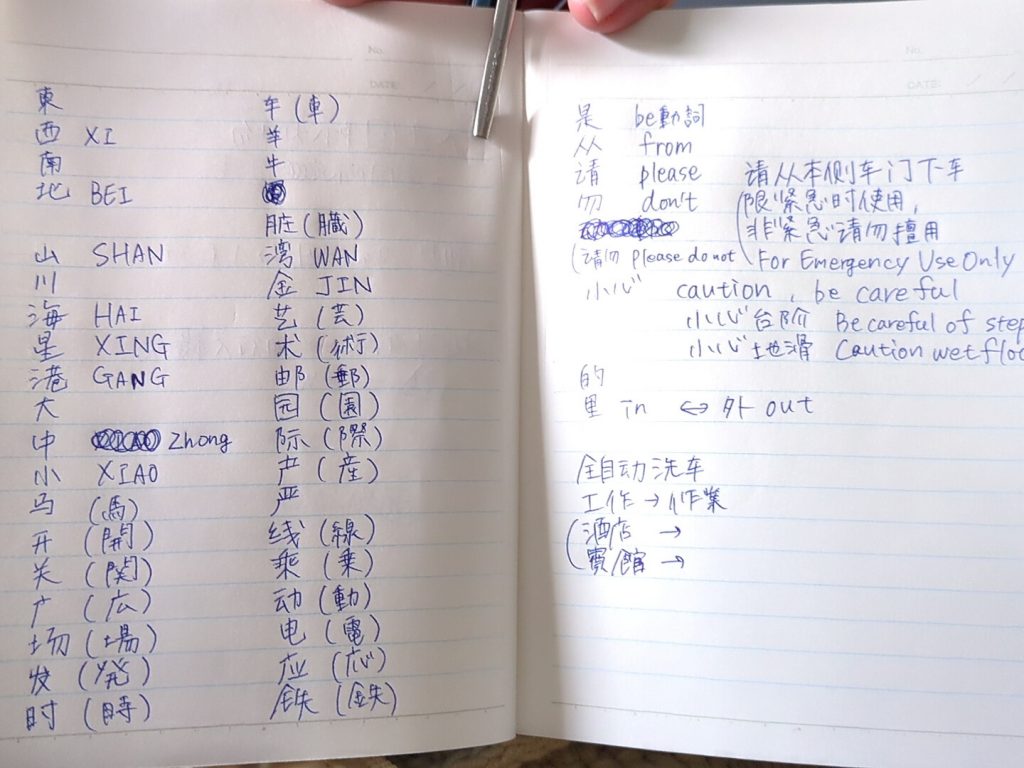 No.
DATE
東
西 XI
南
地 BEI
山 SHAN
川
海 HAI
星 XING
港 GANG
大
中 Zhong
小 XIAO
马 (馬)
开 (開)
关 (関)
广 (広)
场 (場)
发 (発)
时 (時)
车 (車)
羊
牛
脏 (臓)
湾 WAN
金 JIN
艺 (芸)
术 (術)
邮 (郵)
园 (園)
际 (際)
产 (産)
严
线 (線)
乘 (乗)
动 (動)
电 (電)
应 (応)
鉄 (鉄)
No.
DATE
是 be動詞
从 from
请 please 请从本侧车门下车
勿 don't (限紧急时使用,
非紧急请勿擅用
(请勿 please do not For Emergency Use Only
小心 caution, be careful
小心台阶 Be careful of step
小心地滑 Caution wet floo
的
里 in ↔ 外 out
全自动洗车
工作 → 作業
(酒店 →
賓館 →